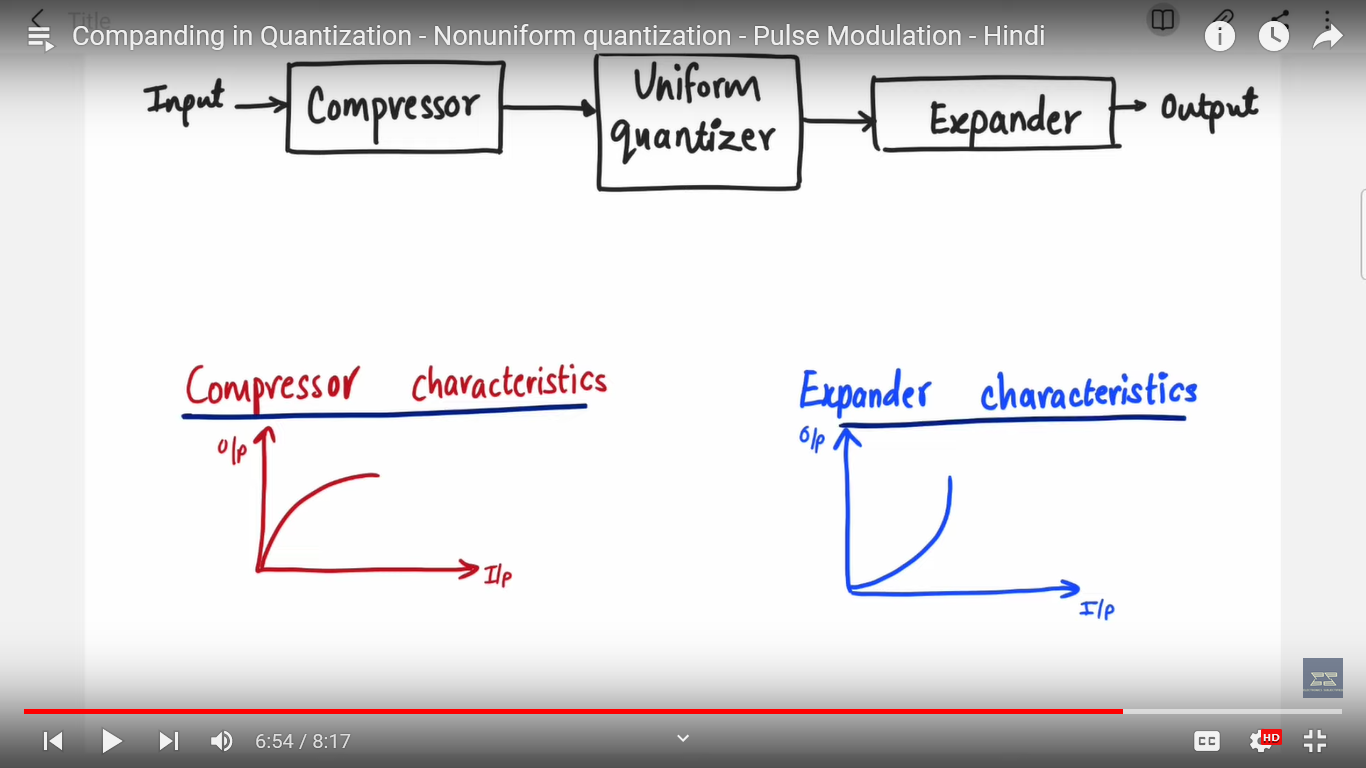 Title
Companding in Quantization - Nonuniform quantization - Pulse Modulation - Hindi
Input
Compressor
Uniform
quantizer
Expander
Output
Compressor characteristics
Expander characteristics
O/p
I/p
O/p
I/p
6:54 / 8:17
CC
HD